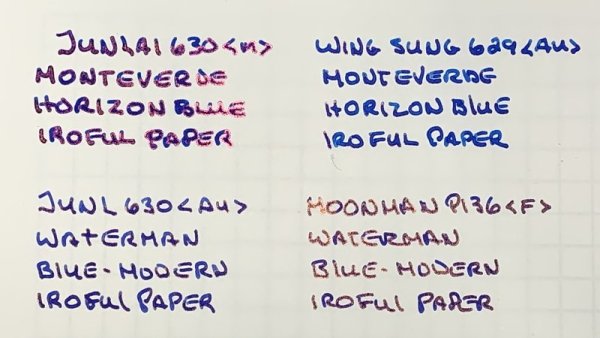 JUNLAI 630 <M>
MONTEVERDE
HORIZON BLUE
IROFUL PAPER
WING SUNG 629 <AU>
MONTEVERDE
HORIZON BLUE
IROFUL PAPER
JUNL 630 <AU>
WATERMAN
BLUE-MODERN
IROFUL PAPER
MOONMAN P136 <F>
WATERMAN
BLUE-MODERN
IROFUL PAPER